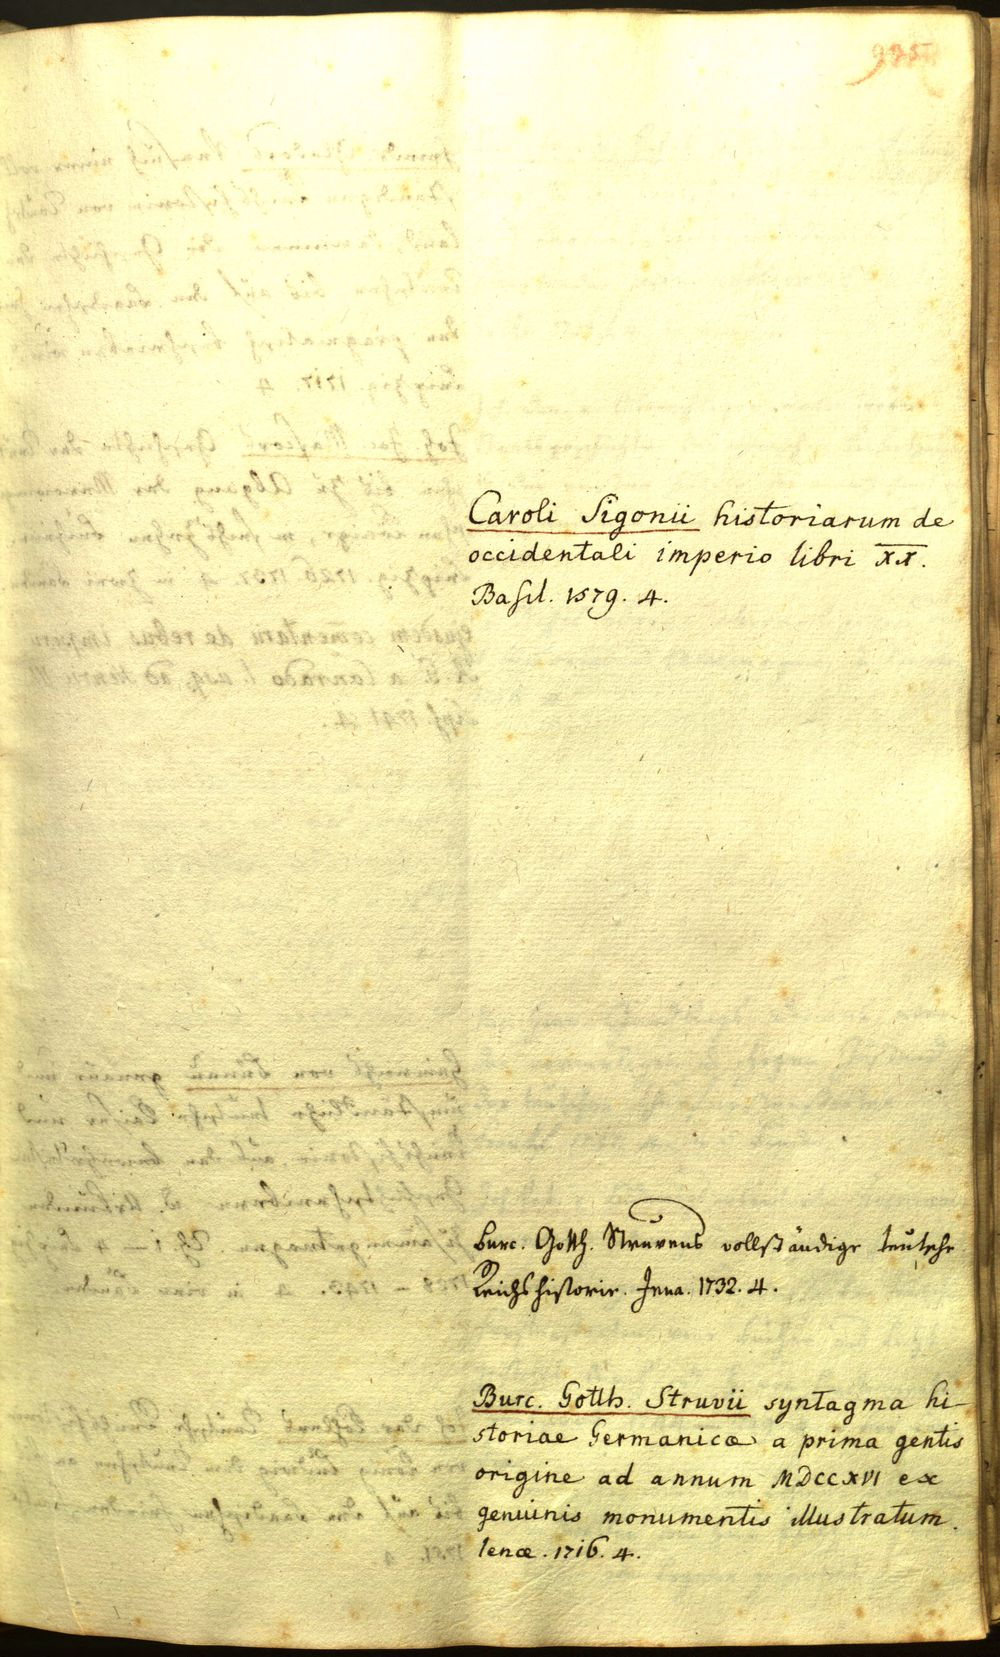 Caroli Sigonii historiarum de
occidentali imperio libri XX.
Basil. 1579. 4.
Burc. Gotth. Struvens vollständige teutsche
Reichshistorie. Jena. 1732. 4.
Burc. Gotth. Struvii syntagma hi-
storiae Germanicæ a prima gentis
origine ad annum MDCCXVI ex
genuinis monumentis illustratum.
Ienæ. 1716. 4.